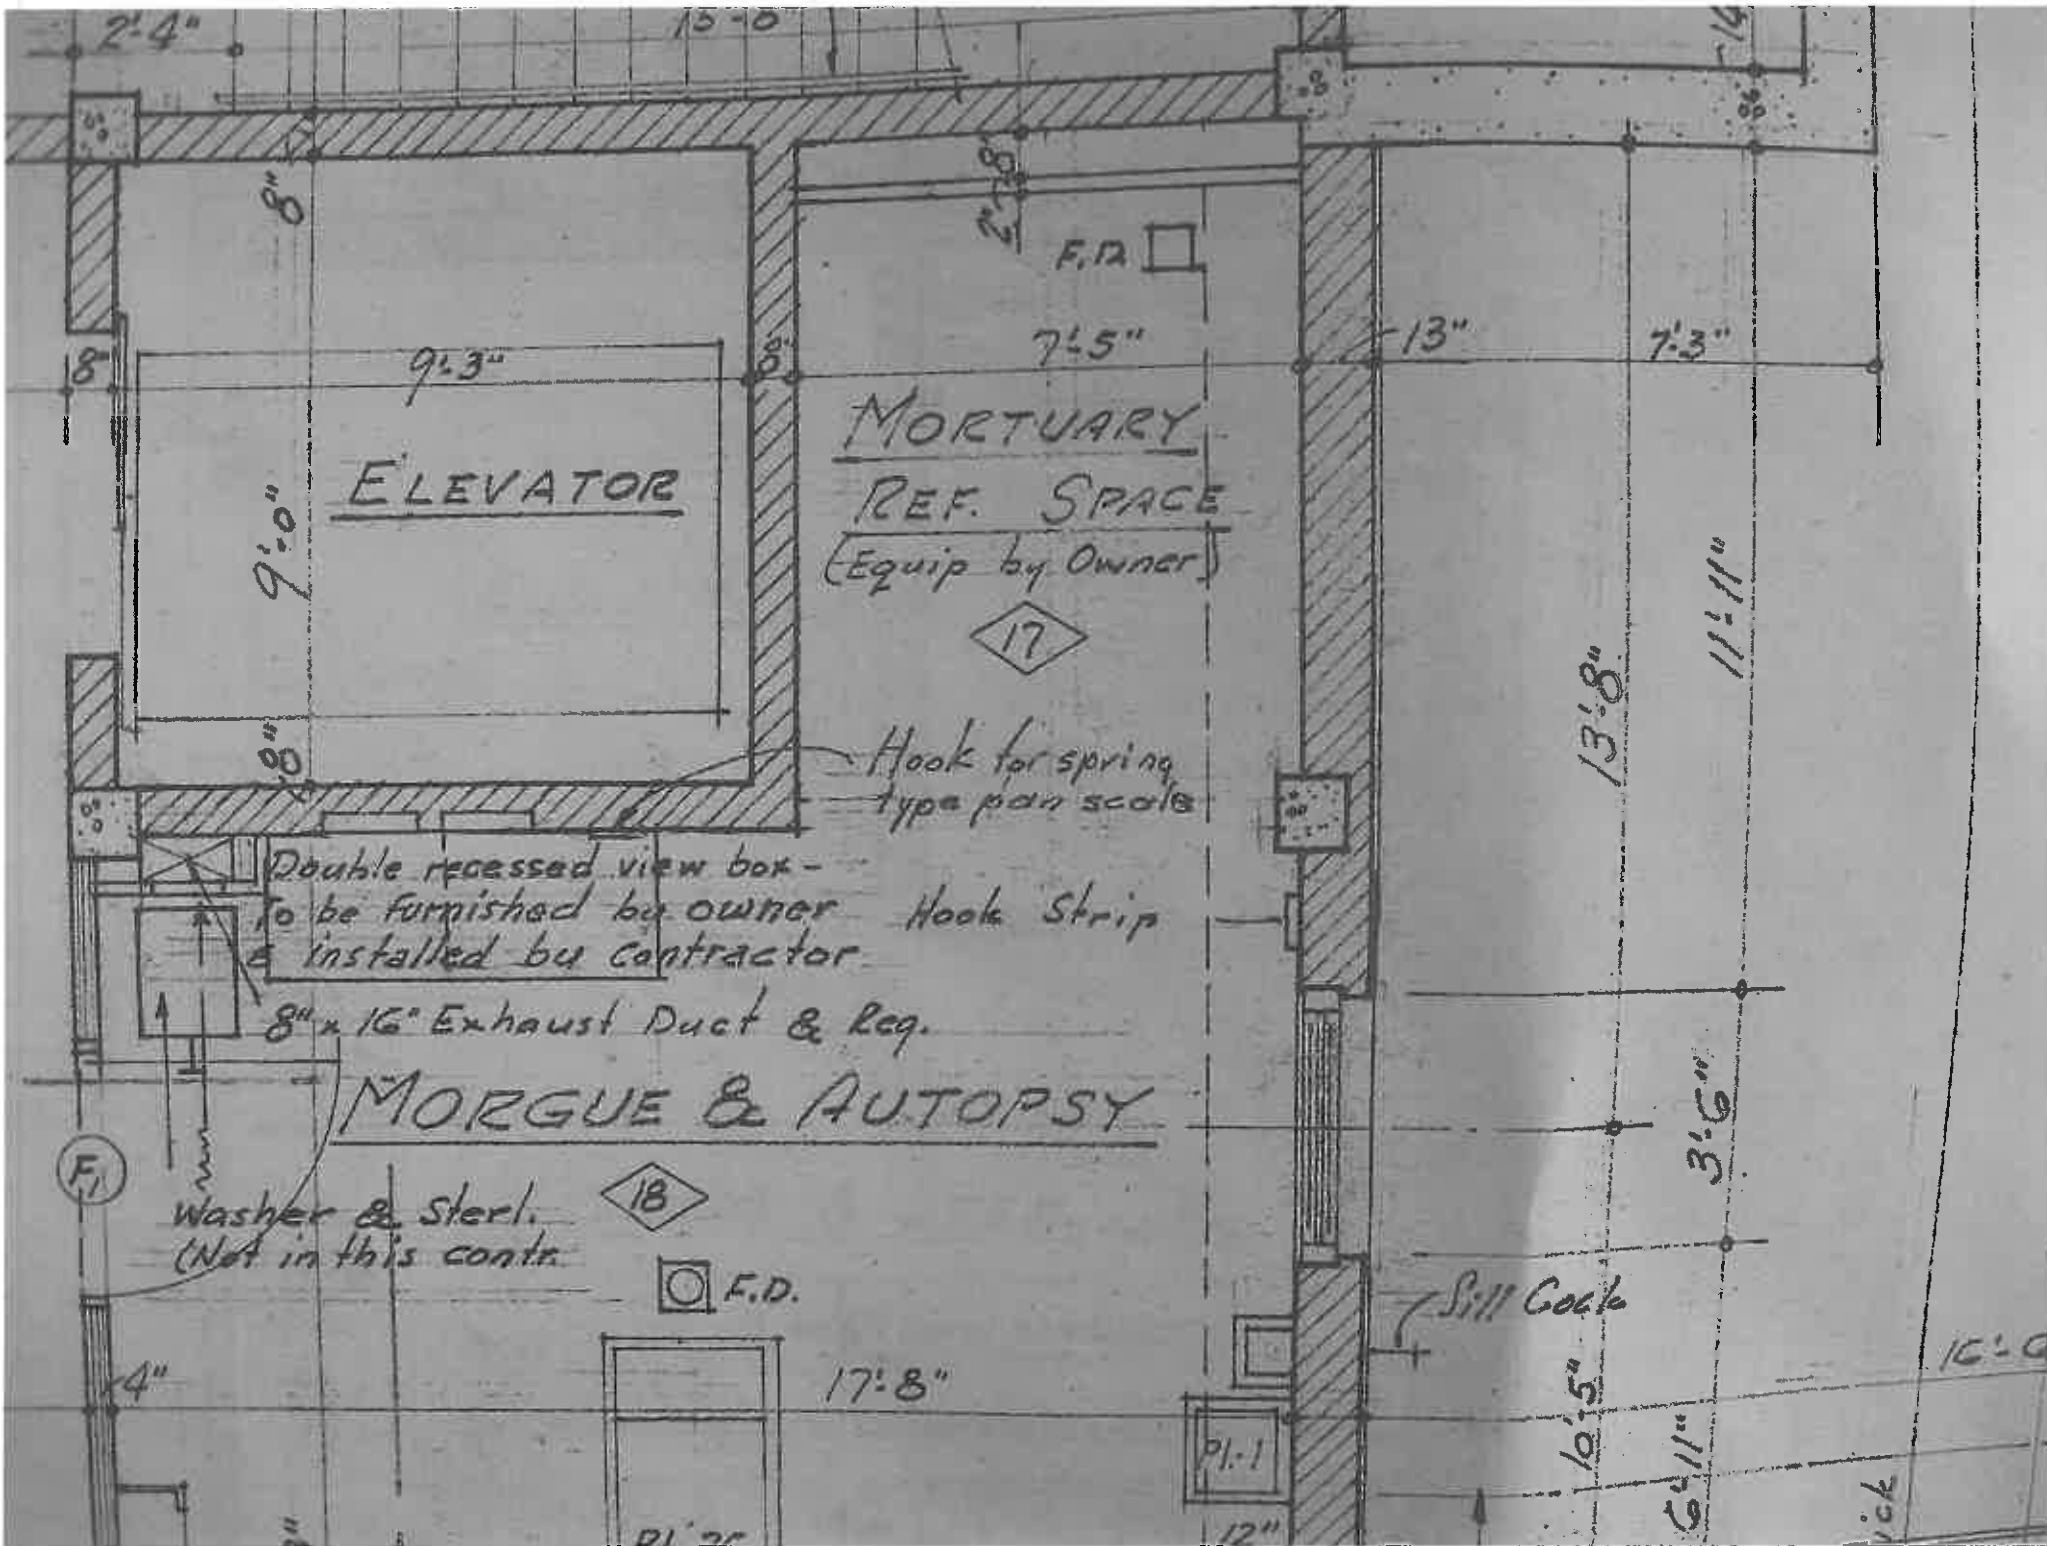 2'-4"
15'-0"
8"
2"
8"
F.D.
8"
9'-3"
8"
7'-5"
13"
7'-3"
MORTUARY
REF. SPACE
(Equip by Owner)
17
ELEVATOR
9'-0"
11'-11"
13'-8"
8"
Hook for spring
type pan scale
Double recessed view box -
To be furnished by owner
& installed by contractor
Hook Strip
8" x 16" Exhaust Duct & Reg.
MORGUE & AUTOPSY
3'-6"
F1
18
Washer & Sterl.
(Not in this contr.
F.D.
Sill Cock
4"
17'-8"
10'-5"
6'-11"
Pl.-1
12"